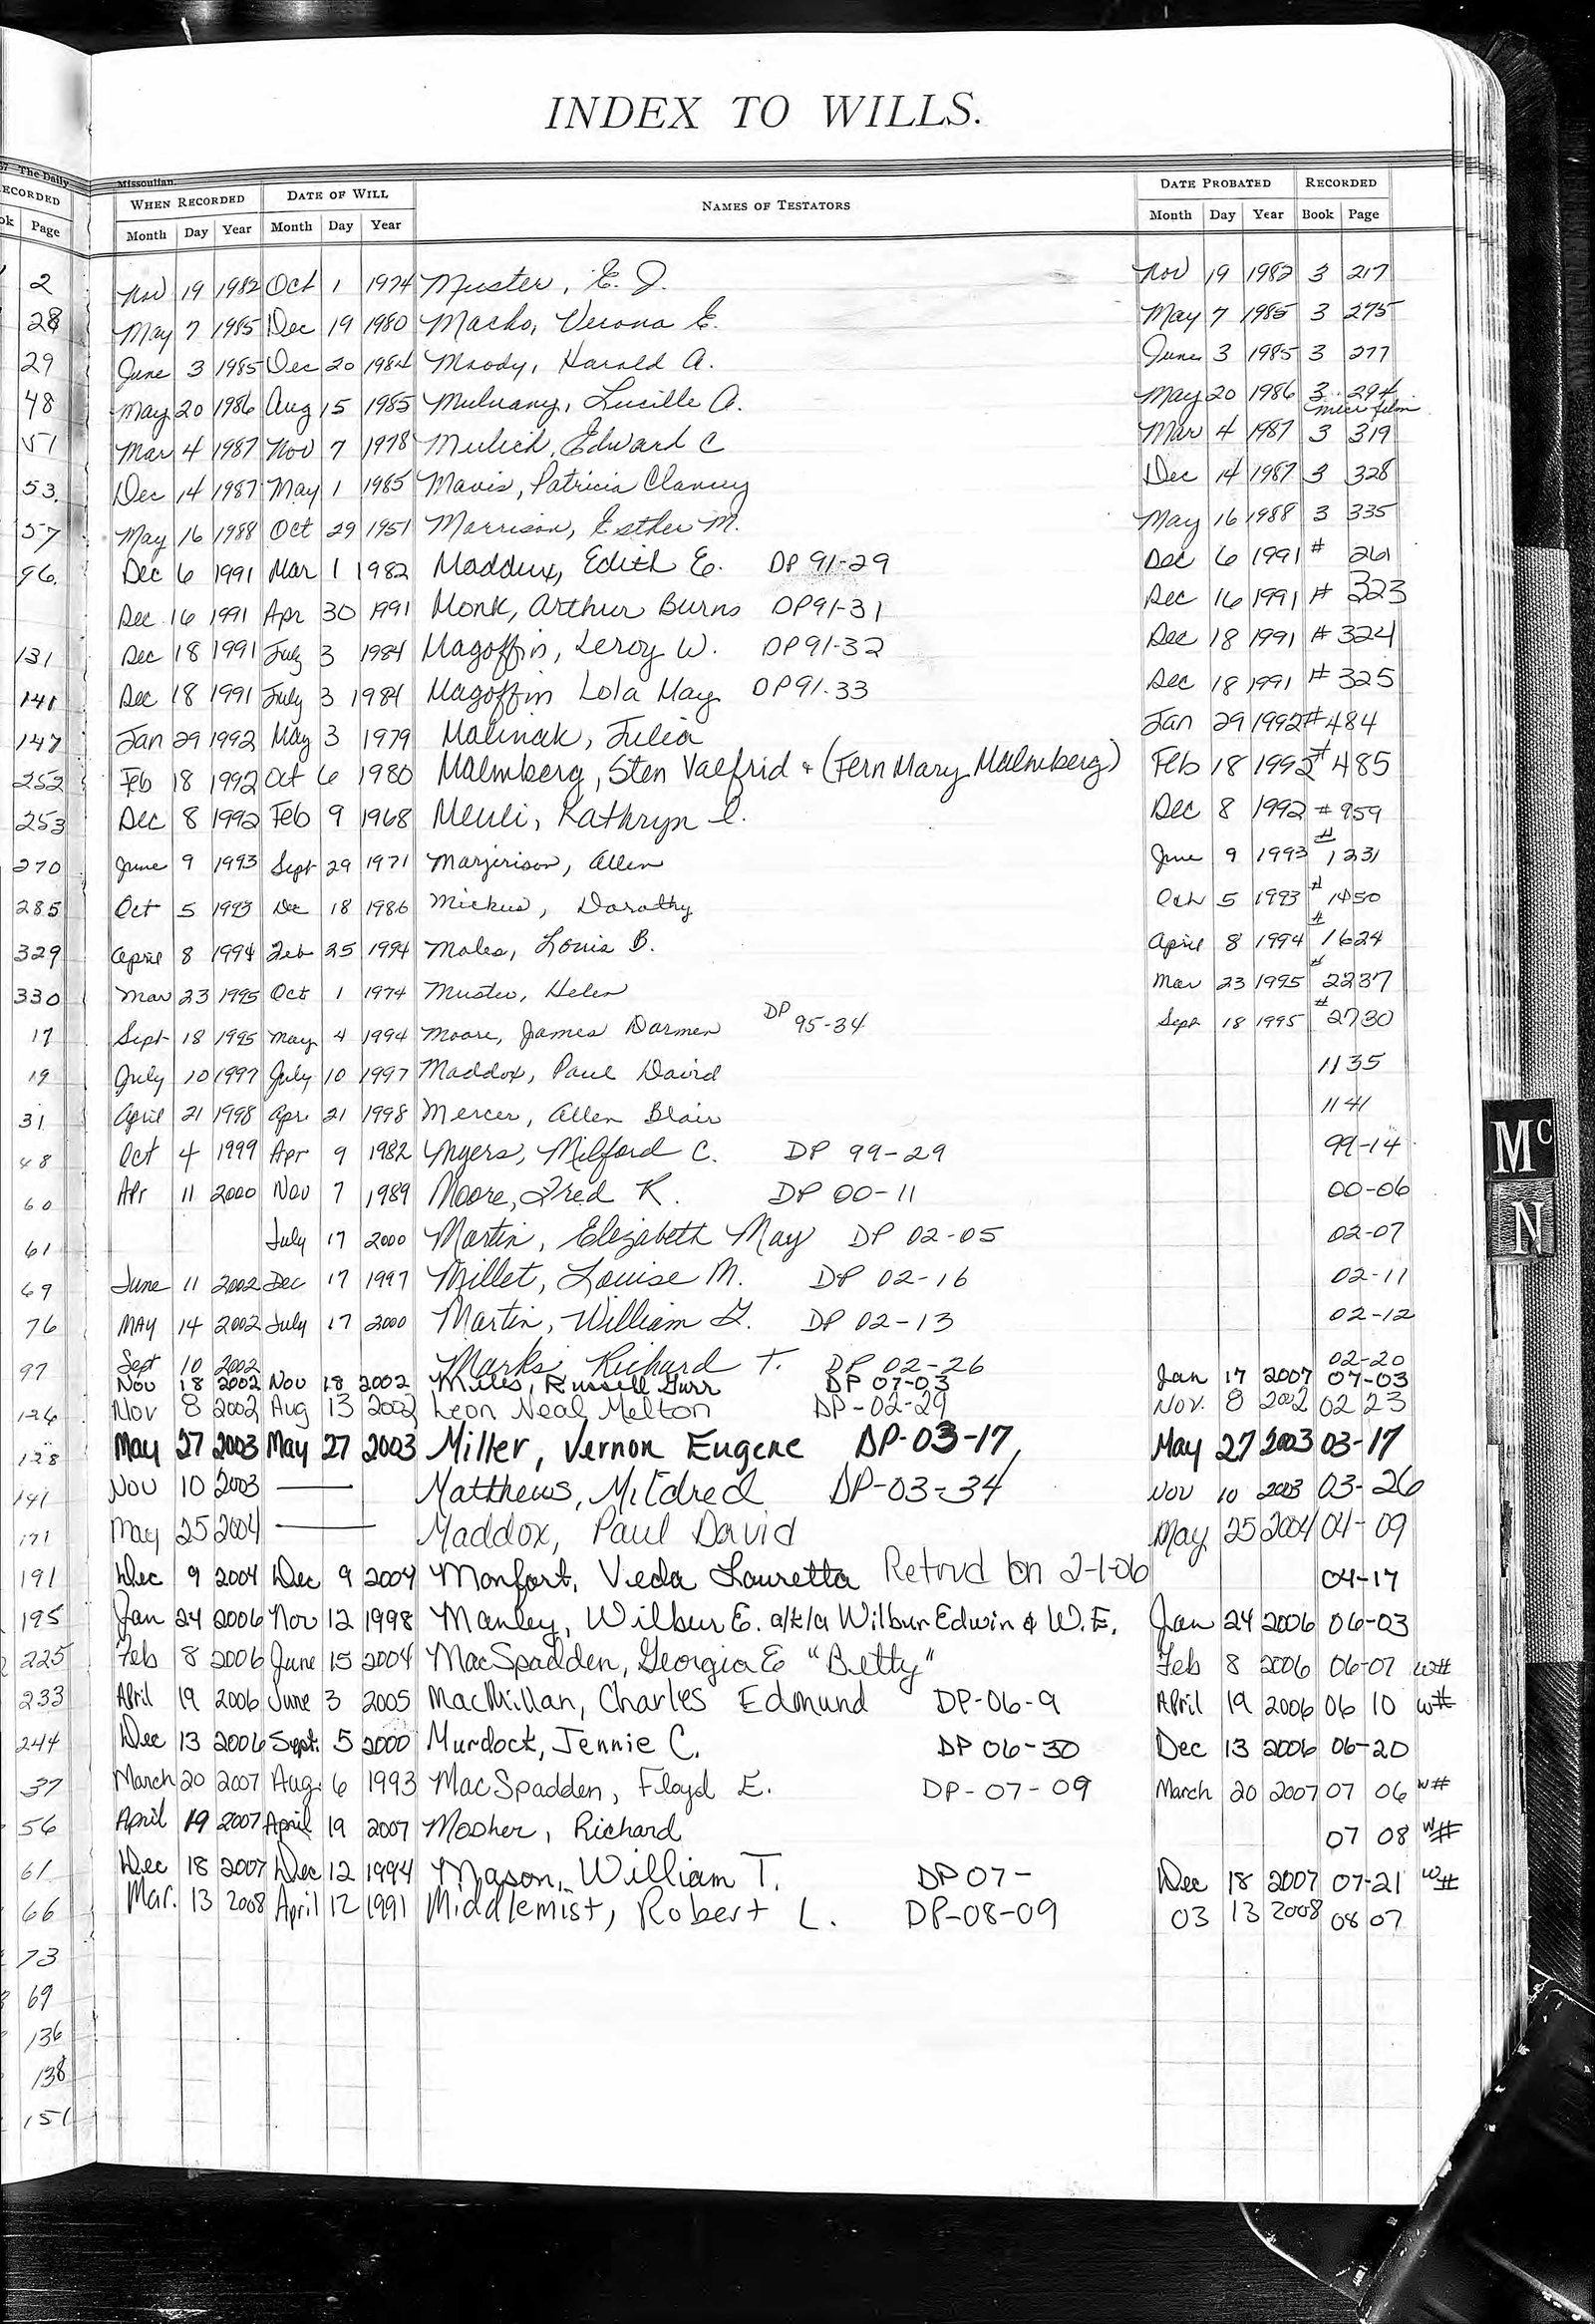 INDEX TO WILLS.
The Daily Missoulian.
RECORDED WHEN RECORDED DATE OF WILL NAMES OF TESTATORS DATE PROBATED RECORDED
Page Month Day Year Month Day Year Month Day Year Book Page
2 Nov 19 1982 Oct 1 1974 Muster, E. J. Nov 19 1982 3 217
28 May 7 1985 Dec 19 1980 Macho, Verona E. May 7 1985 3 275
29 June 3 1985 Dec 20 1984 Moody, Harold A. June 3 1985 3 277
48 May 20 1986 Aug 15 1985 Mulvany, Lucille A. May 20 1986 3 294
microfilm
51 Mar 4 1987 Nov 7 1978 Mulich, Edward C Mar 4 1987 3 319
53 Dec 14 1987 May 1 1985 Mavis, Patricia Clancy Dec 14 1987 3 328
57 May 16 1988 Oct 29 1951 Morrison, Esther M. May 16 1988 3 335
96 Dec 6 1991 Mar 1 1982 Maddux, Edith E. DP 91-29 Dec 6 1991 # 261
Dec 16 1991 Apr 30 1991 Monk, Arthur Burns DP91-31 Dec 16 1991 # 323
131 Dec 18 1991 July 3 1984 Magoffin, Leroy W. DP91-32 Dec 18 1991 # 324
141 Dec 18 1991 July 3 1984 Magoffin Lola May DP91-33 Dec 18 1991 # 325
147 Jan 29 1992 May 3 1979 Malinak, Julia Jan 29 1992 # 484
252 Feb 18 1992 Oct 6 1980 Malmberg, Sten Valfrid + (Fern Mary Malmberg) Feb 18 1992 # 485
253 Dec 8 1992 Feb 9 1968 Meuli, Kathryn I. Dec 8 1992 # 959
270 June 9 1993 Sept 29 1971 Marjerison, Allen June 9 1993 # 1231
285 Oct 5 1993 Dec 18 1986 Mickus, Dorothy Oct 5 1993 # 1450
329 April 8 1994 Feb 25 1994 Moles, Louis B. April 8 1994 # 1624
330 Mar 23 1995 Oct 1 1974 Muster, Helen Mar 23 1995 # 2237
17 Sept 18 1995 May 4 1994 Moore, James Darmen DP 95-34 Sept 18 1995 # 2730
19 July 10 1997 July 10 1997 Maddox, Paul David 1135
31 April 21 1998 Apr 21 1998 Mercer, Allen Blair 1141
48 Oct 4 1999 Apr 9 1982 Myers, Milford C. DP 99-29 99-14
60 Apr 11 2000 Nov 7 1989 Moore, Fred K. DP 00-11 00-06
61 July 17 2000 Martin, Elizabeth May DP 02-05 02-07
69 June 11 2002 Dec 17 1997 Millet, Louise M. DP 02-16 02-11
76 MAY 14 2002 July 17 2000 Martin, William G. DP 02-13 02-12
97 Sept 10 2002 Marks, Richard T. DP 02-26 02-20
Nov 18 2002 Nov 18 2002 Miles, Russell Durr DP 07-03 Jan 17 2007 07-03
126 Nov 8 2002 Aug 13 2002 Leon Neal Melton DP-02-29 Nov. 8 2002 02 23
128 May 27 2003 May 27 2003 Miller, Vernon Eugene DP-03-17 May 27 2003 03-17
141 Nov 10 2003 — Matthews, Mildred DP-03-34 Nov 10 2003 03-26
171 May 25 2004 — Maddox, Paul David May 25 2004 04-09
191 Dec 9 2004 Dec 9 2004 Monfort, Veda Louretta Retrvd on 2-1-06 04-17
195 Jan 24 2006 Nov 12 1998 Manley, Wilbur E. a/k/a Wilbur Edwin & W.E. Jan 24 2006 06-03
225 Feb 8 2006 June 15 2004 MacSpadden, Georgia E "Betty" Feb 8 2006 06-07 W#
233 April 19 2006 June 3 2005 MacMillan, Charles Edmund DP-06-9 April 19 2006 06 10 W#
244 Dec 13 2006 Sept. 5 2000 Murdock, Jennie C. DP 06-30 Dec 13 2006 06-20
37 March 20 2007 Aug. 6 1993 MacSpadden, Floyd E. DP-07-09 March 20 2007 07 06 W#
56 April 19 2007 April 19 2007 Mosher, Richard 07 08 W#
61 Dec 18 2007 Dec 12 1994 Mason, William T. DP 07- Dec 18 2007 07-21 W#
66 Mar. 13 2008 April 12 1991 Middlemist, Robert L. DP-08-09 03 13 2008 08 07
73
69
136
138
151
Mc
N